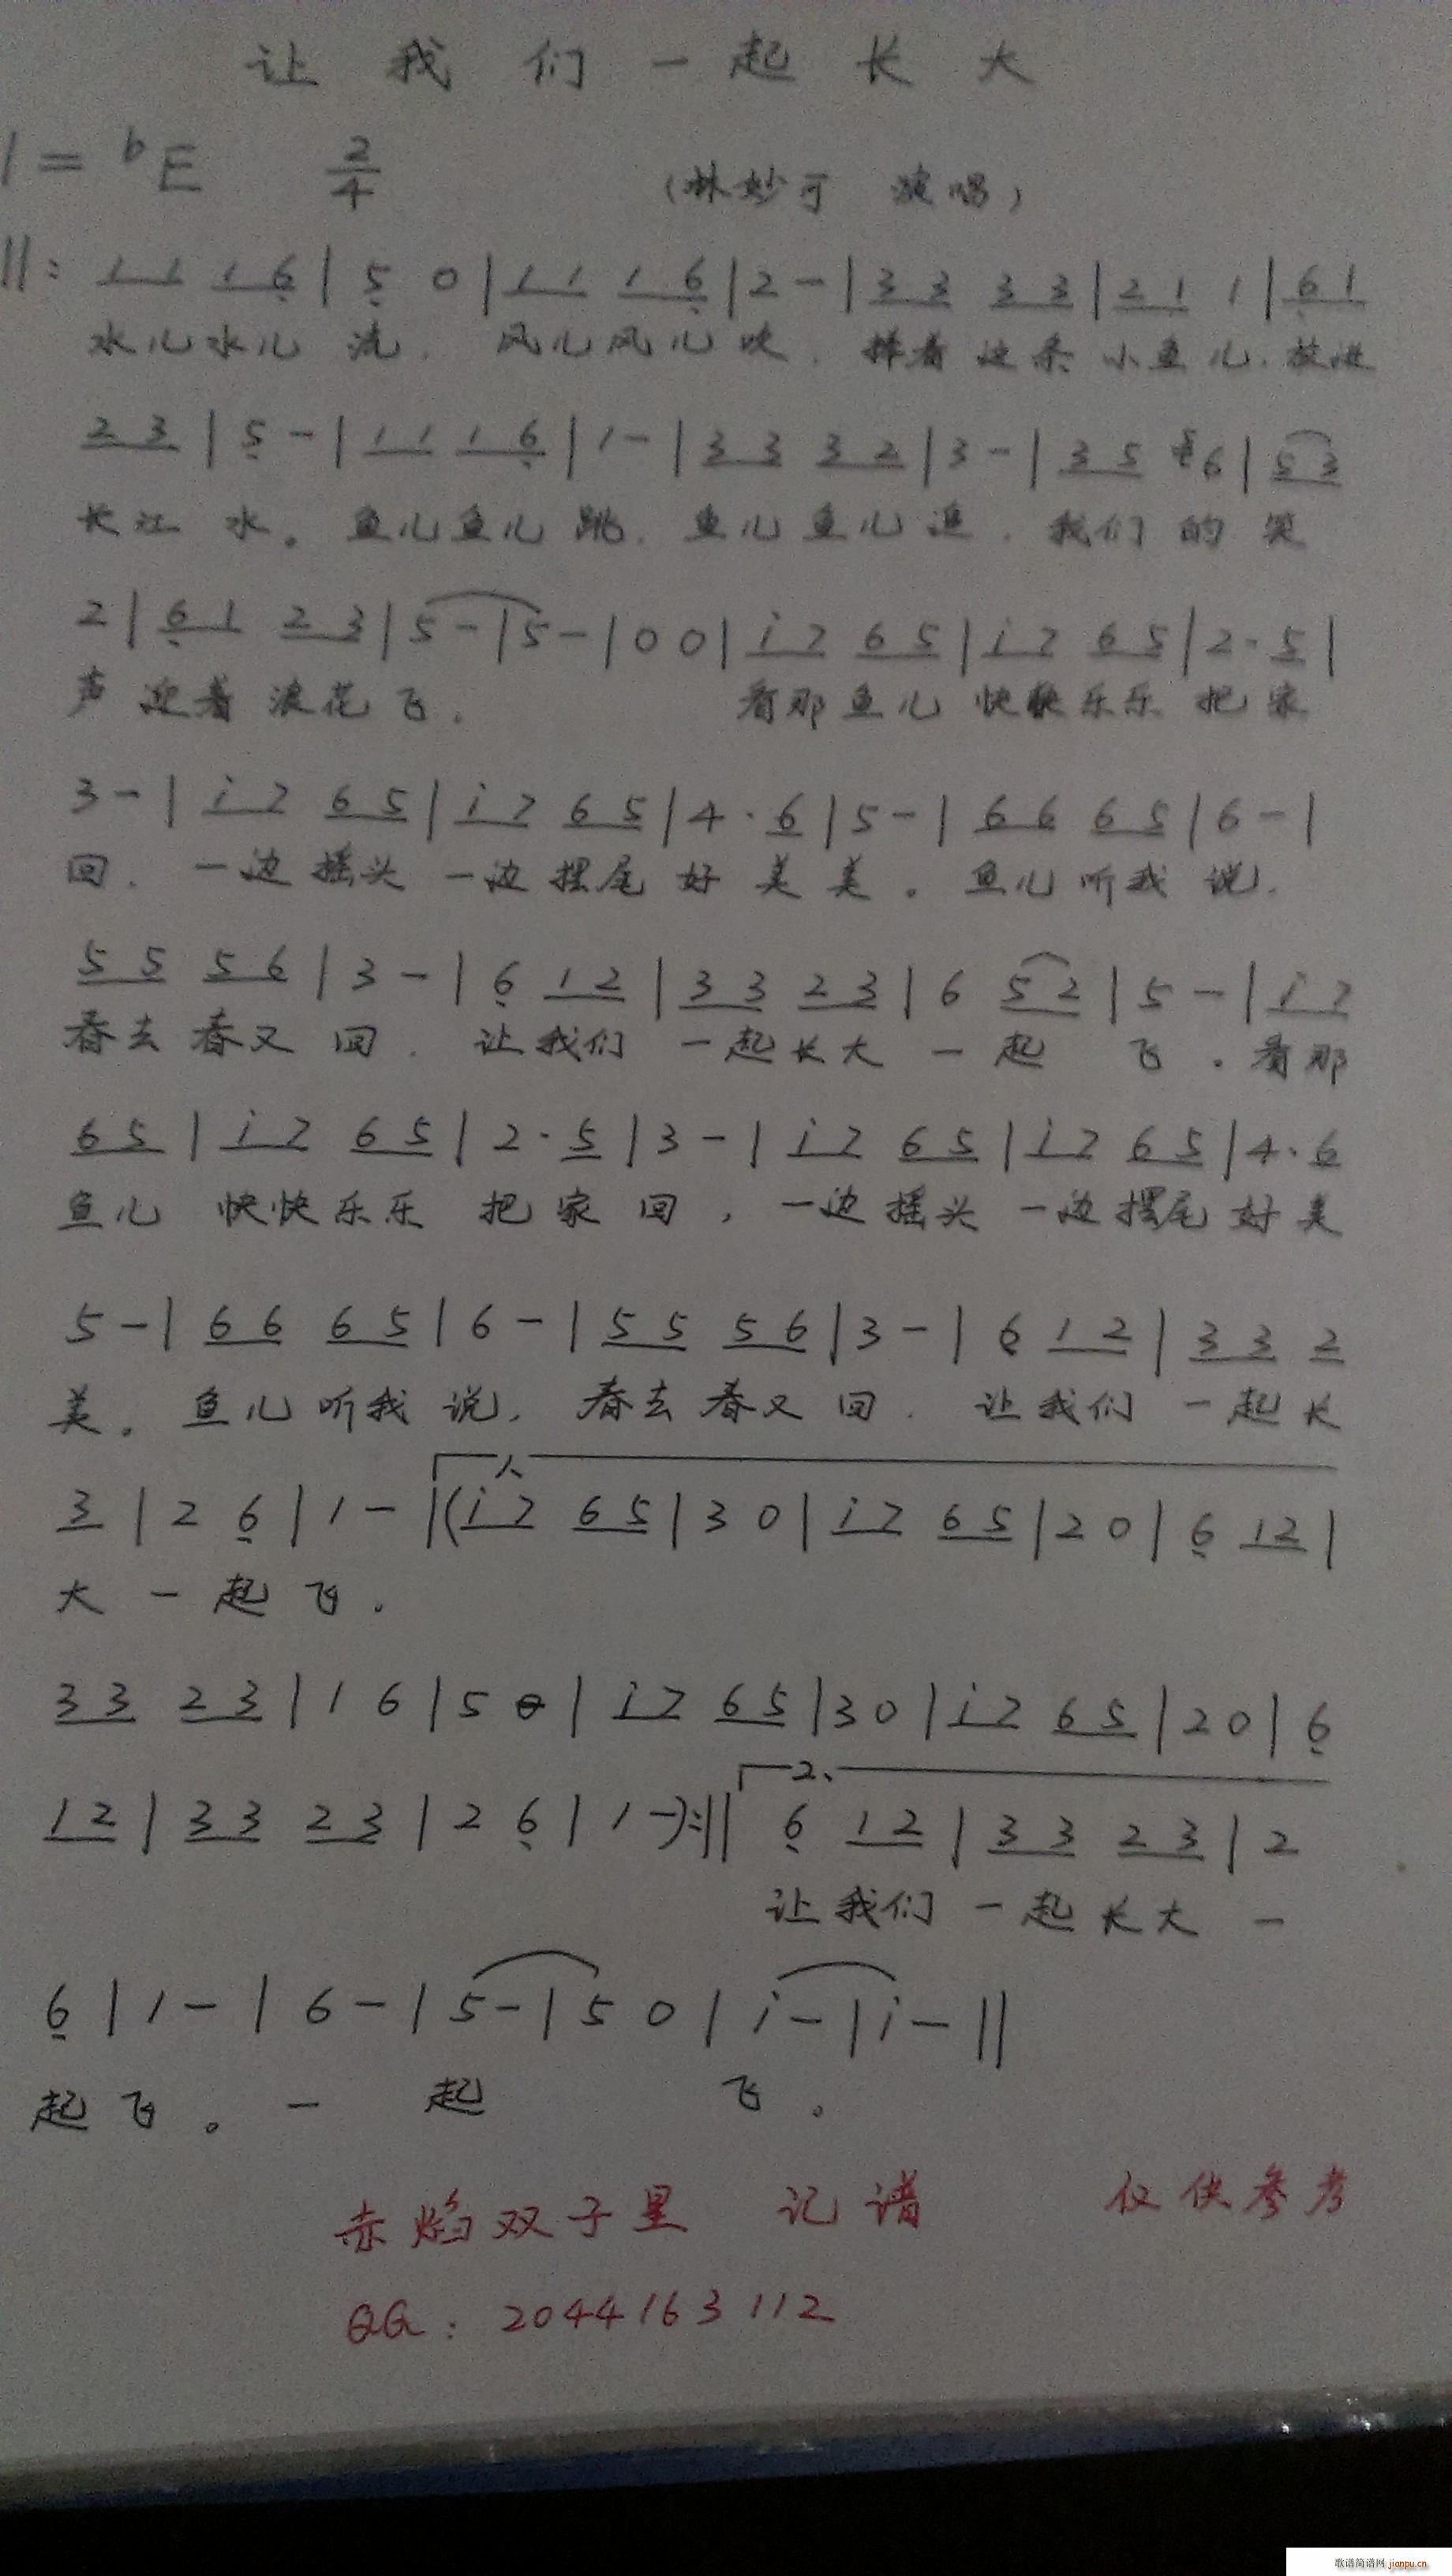 让我们一起长大
1=bE 2/4 (林妙可 演唱)
||: 1 1 1 6 | 5 0 | 1 1 1 6 | 2 - | 3 3 3 3 | 2 1 1 | 6 1
水儿水儿 流. 风儿风儿 吹. 捧着这条 小鱼儿. 放进
2 3 | 5 - | 1 1 1 6 | 1 - | 3 3 3 2 | 3 - | 3 5 6 | 5 3
长江 水。鱼儿鱼儿 跳. 鱼儿鱼儿 追. 我们的 笑
2 | 6 1 2 3 | 5 - | 5 - | 0 0 | i 7 6 5 | i 7 6 5 | 2 · 5 |
声 迎着浪花飞. 看那鱼儿 快快乐乐 把家
3 - | i 7 6 5 | i 7 6 5 | 4 · 6 | 5 - | 6 6 6 5 | 6 - |
回. 一边摇头 一边摆尾 好美美。鱼儿听我 说.
5 5 5 6 | 3 - | 6 1 2 | 3 3 2 3 | 6 5 2 | 5 - | i 7
春去春又 回. 让我们 一起长大 一起 飞. 看那
6 5 | i 7 6 5 | 2 · 5 | 3 - | i 7 6 5 | i 7 6 5 | 4 · 6
鱼儿 快快乐乐 把家 回, 一边摇头 一边摆尾 好美
5 - | 6 6 6 5 | 6 - | 5 5 5 6 | 3 - | 6 1 2 | 3 3 2
美。鱼儿听我 说, 春去春又 回. 让我们 一起长
1、
3 | 2 6 | 1 - | (i 7 6 5 | 3 0 | i 7 6 5 | 2 0 | 6 1 2 |
大 一起 飞.
3 3 2 3 | 1 6 | 5 0 | i 7 6 5 | 3 0 | i 7 6 5 | 2 0 | 6
2、
1 2 | 3 3 2 3 | 2 6 | 1 -):|| 6 1 2 | 3 3 2 3 | 2
让我们 一起长大 一
6 | 1 - | 6 - | 5 - | 5 0 | i - | i - ||
起 飞。一 起 飞。
赤焰双子星 记谱 仅供参考
QQ: 2044163112
歌谱简谱网 jianpu.cn